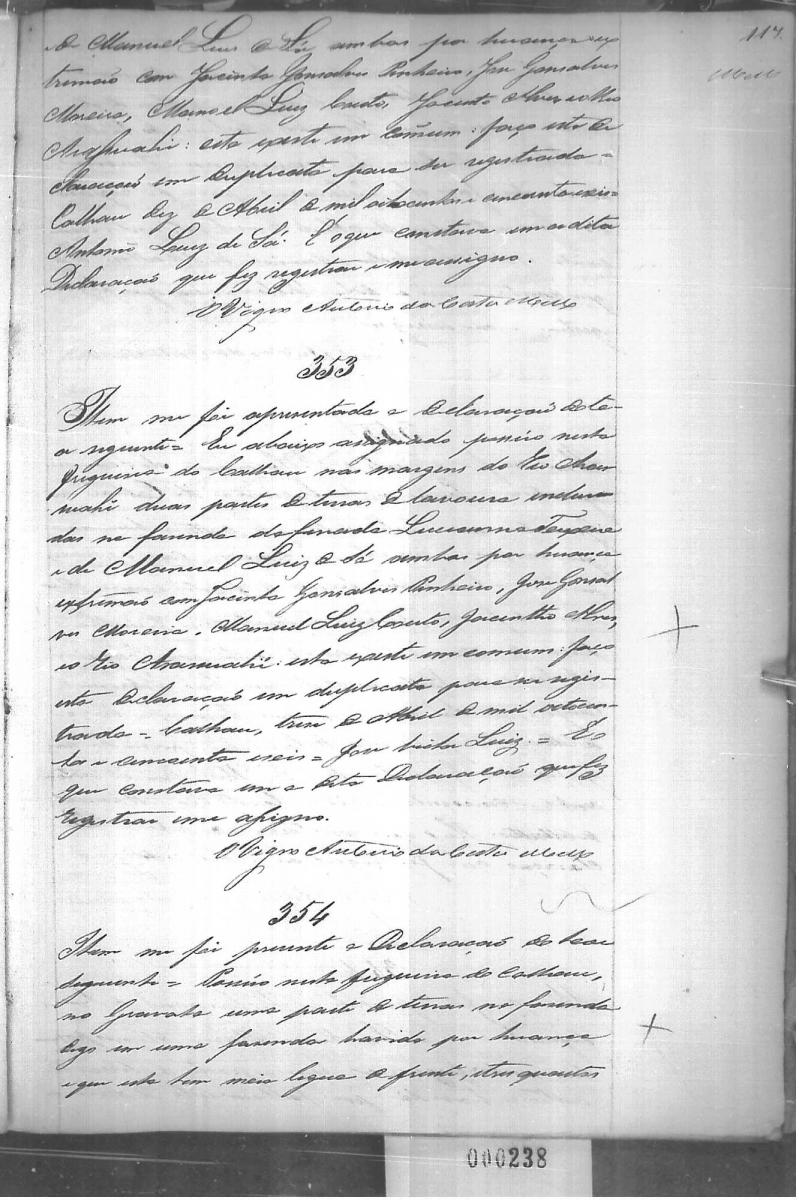 117.
Mello
e de Manuel Luis de Sá, ambas por herança ex
tremão com Jacinto Gonsalves Pinheiro, Jose Gonsalves
Moreira, Manoel Luiz Couto, Jacinto Alves e o Rio
Arassuahi: esta existe em comum: faço esta de
claração em duplicata para ser registrada =
Calhau dez de Abril de mil oitocentos e cincoenta e seis =
Antonio Luiz de Sá. É o que constava em a dita
Declaração que fez registrar e me assigno.
O Vigro Antonio da Costa Mello
353
Item me foi apresentada a declaração do te-
or seguinte = Eu abaixo assignado possúo nesta
freguesia do Calhau nas margens do Rio Aras
suahi duas partes de terras de lavoura
das na fazenda da finada Teixeira
e de Manuel Luiz de Sá ambas por herança
extremão com Jacinto Gonsalves Pinheiro, Jose Gonsal
ves Moreira, Manuel Luiz Couto, Jacintho Alves,
e o Rio Arassuahi: esta existe em comum: faço
esta declaração em duplicata para ser regis-
trada = Calhau, treze de Abril de mil oitocen-
tos e cincoenta e seis = Jose Luiz. = E o
que constava em a dita Declaração que fiz
registrar e me assigno.
O Vigro Antonio da Costa Mello
354
Item me foi presente a Declaração do teor
seguinte = Possúo nesta freguesia do Calhau,
no Gravata uma parte de terras na fazenda
digo em uma fazenda havida por herança
e que esta tem meia legua de frente, e tres quartos
000238